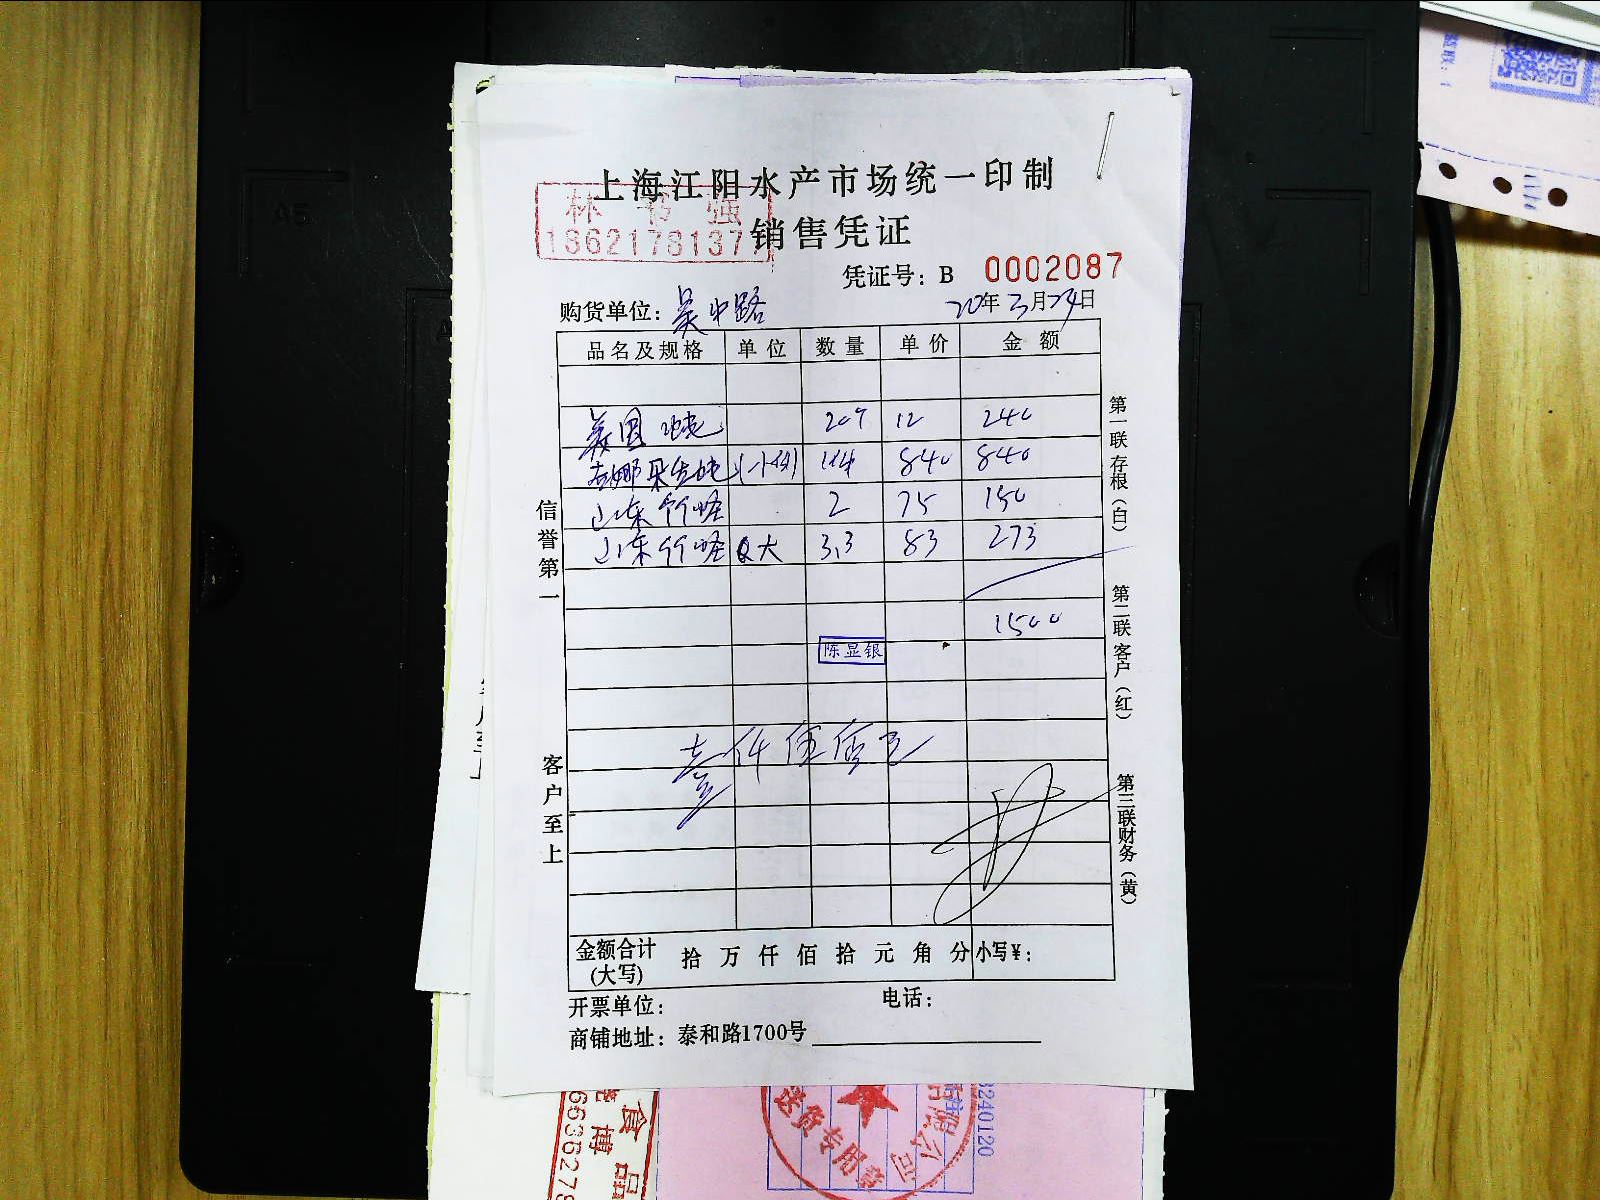 上海江阳水产市场统一印制
林书强
18621781377
销售凭证
凭证号：B 0002087
购货单位：吴中路
20年3月24日
品名及规格 单位 数量 单价 金额
美国 12 240
840 840
山东 2 75 150
山东 大 3.3 83 273
1500
陈显银
壹仟伍佰元
信誉第一
客户至上
第一联存根（白）
第二联客户（红）
第三联财务（黄）
金额合计（大写） 拾 万 仟 佰 拾 元 角 分 小写￥：
开票单位： 电话：
商铺地址：泰和路1700号
送货专用章
限公司
食品
3240120
A5